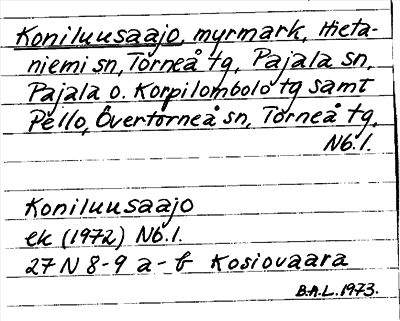 Koniluusaajo, myrmark, Hieta-
niemi sn, Torneå tg, Pajala sn,
Pajala o. Korpilombolo tg samt
Pello, Övertorneå sn, Torneå tg,
Nb.l.
Koniluusaajo
ek (1972) Nb.l.
27 N 8-9 a-b Kosiovaara
B.A.L. 1973.